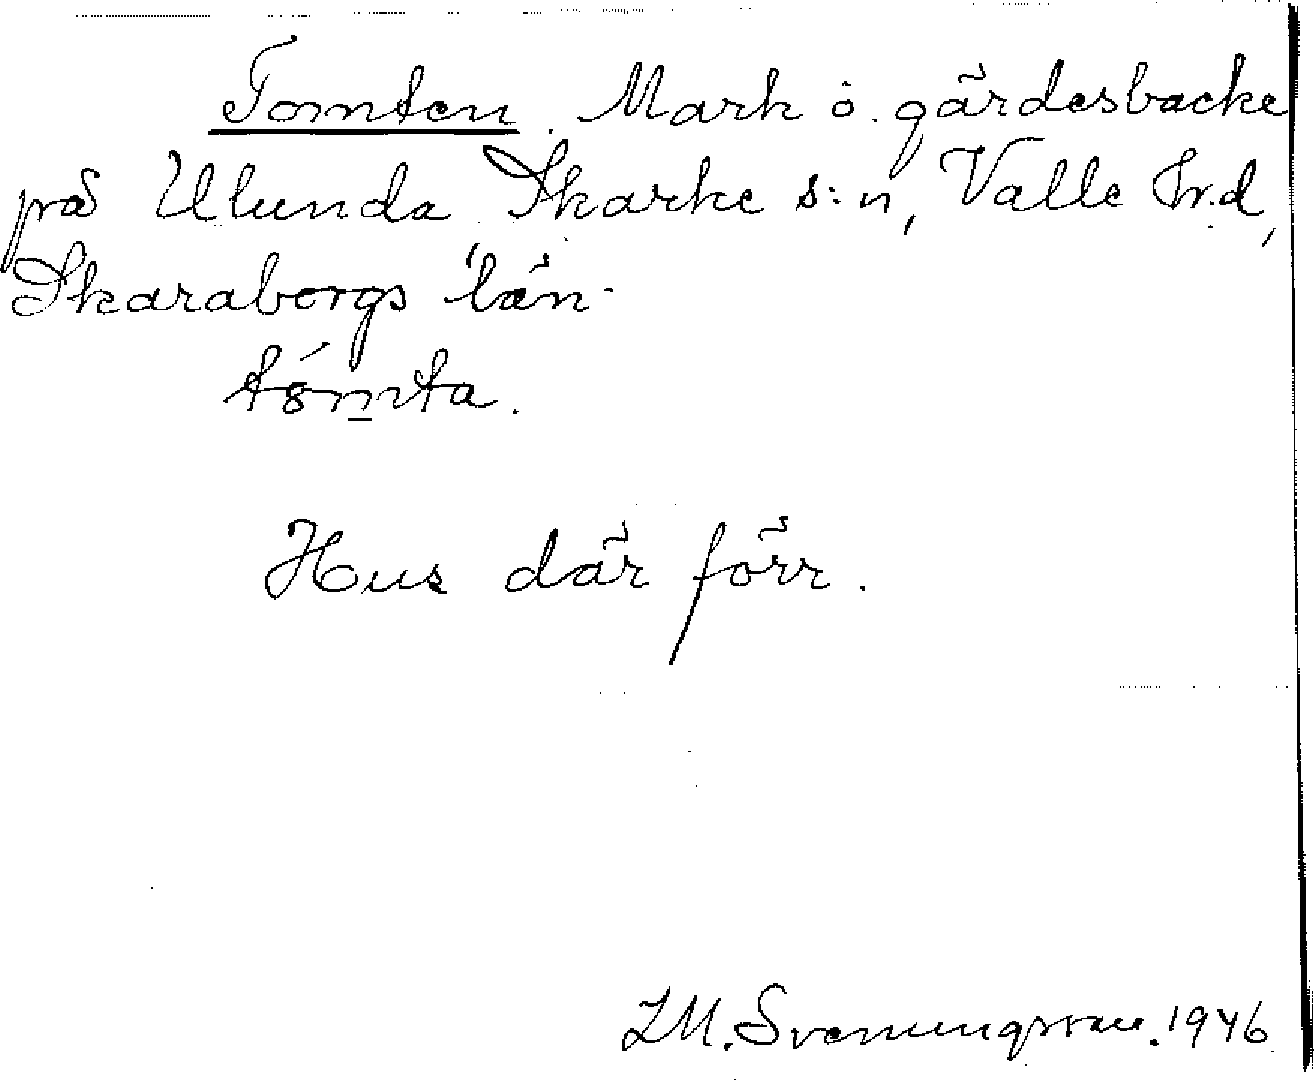 Tomten. Mark o. gärdesbacke
på Ulunda Skarke s:n, Valle hr.d,
Skarabergs län.
tómta.
Hus där förr.
Svenungsson. 1946